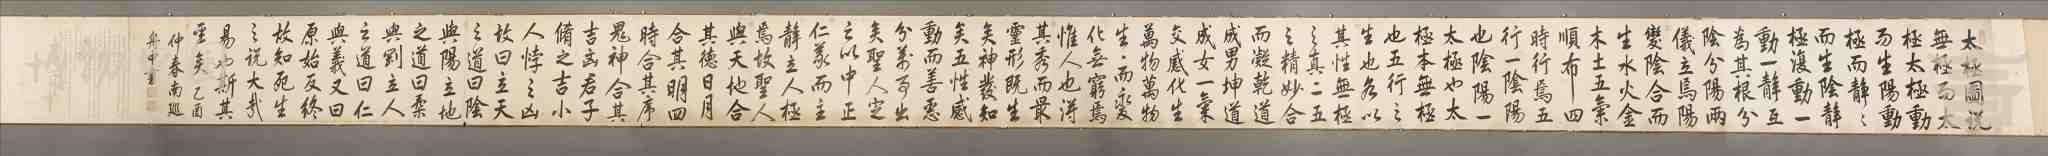 太極圖說
無極而太
極太極動
而生陽動
極而靜〻
而生陰靜
極復動一
動一靜互
為其根分
陰分陽兩
儀立焉陽
變陰合而
生水火金
木土五氣
順布四
時行焉五
行一陰陽
也陰陽一
太極也太
極本無極
也五行之
生也各以
其性無極
之真二五
之精妙合
而凝乾道
成男坤道
成女二氣
交感化生
萬物萬物
生〻而變
化無窮焉
惟人也得
其秀而最
靈形既生
矣神發知
矣五性感
動而善惡
分萬事出
矣聖人定
之以中正
仁義而主
靜立人極
焉故聖人
與天地合
其德日月
合其明四
時合其序
鬼神合其
吉凶君子
脩之吉小
人悖之凶
故曰立天
之道曰陰
與陽立地
之道曰柔
與剛立人
之道曰仁
與義又曰
原始反終
故知死生
之說大哉
易也斯其
至矣 乙酉
仲春南巡
舟中書